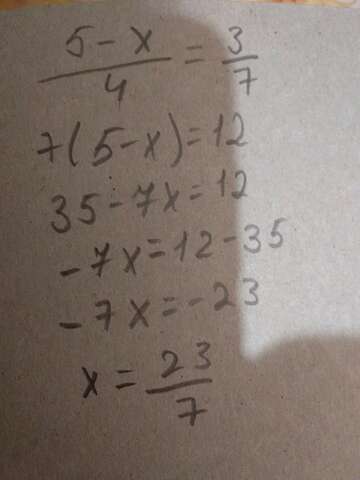 5-x/4 = 3/7
7(5-x)=12
35-7x=12
-7x=12-35
-7x=-23
x=23/7